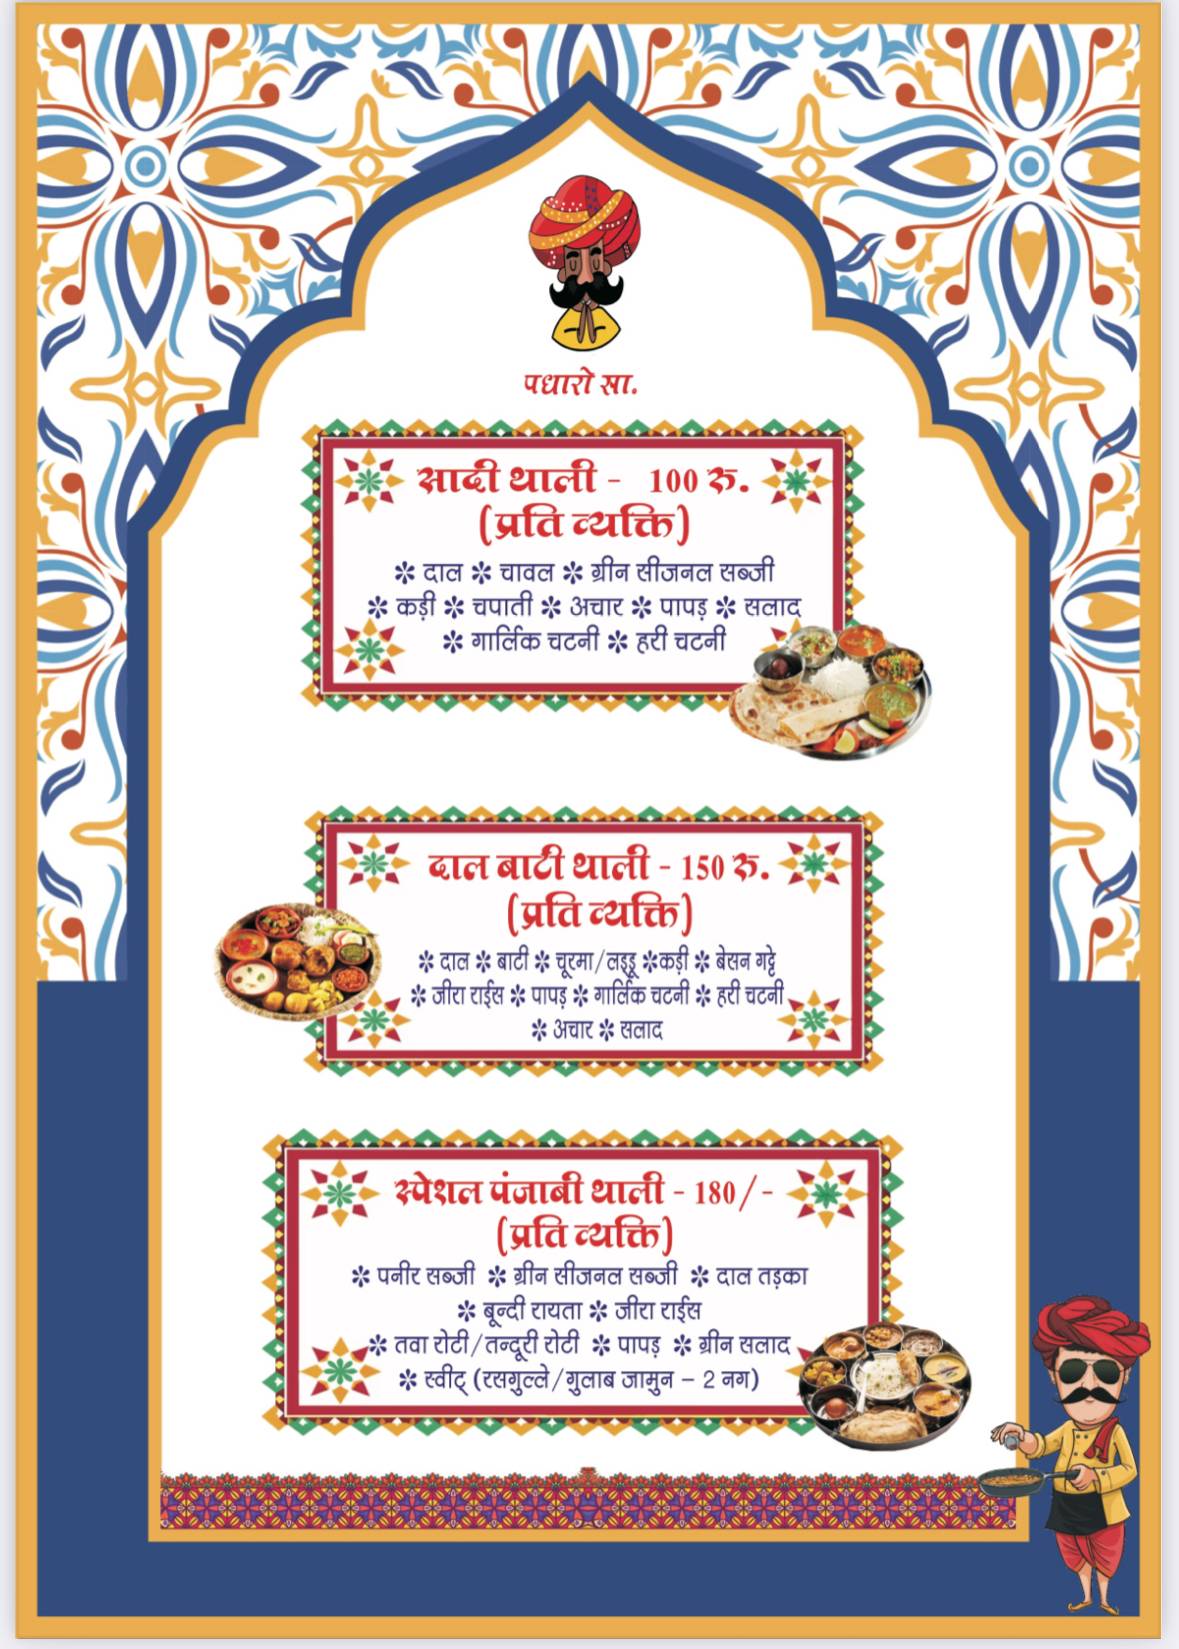 पधारो सा.
सादी थाली - 100 रु.
(प्रति व्यक्ति)
✻ दाल ✻ चावल ✻ ग्रीन सीजनल सब्जी
✻ कड़ी ✻ चपाती ✻ अचार ✻ पापड़ ✻ सलाद
✻ गार्लिक चटनी ✻ हरी चटनी
दाल बाटी थाली - 150 रु.
(प्रति व्यक्ति)
✻ दाल ✻ बाटी ✻ चूरमा/लड्डू ✻कड़ी ✻ बेसन गट्टे
✻ जीरा राईस ✻ पापड़ ✻ गार्लिक चटनी ✻ हरी चटनी
✻ अचार ✻ सलाद
स्पेशल पंजाबी थाली - 180/-
(प्रति व्यक्ति)
✻ पनीर सब्जी ✻ ग्रीन सीजनल सब्जी ✻ दाल तड़का
✻ बून्दी रायता ✻ जीरा राईस
✻ तवा रोटी/तन्दूरी रोटी ✻ पापड़ ✻ ग्रीन सलाद
✻ स्वीट् (रसगुल्ले/गुलाब जामुन – 2 नग)